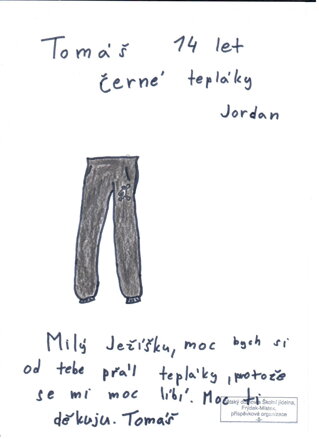 Tomáš 14 let
černé tepláky
Jordan
Milý Ježíšku, moc bych si
od tebe přál tepláky, protože
se mi moc líbí. Moc ti
děkuju. Tomáš
školní jídelna,
Frýdek-Místek,
příspěvková organizace